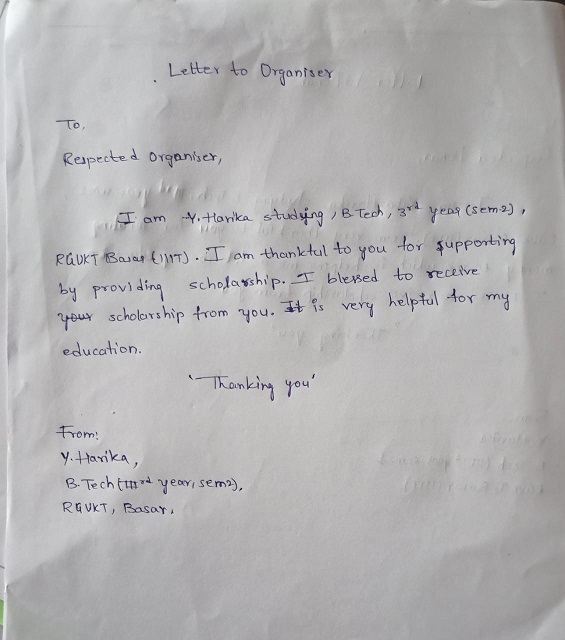 Letter to Organiser
To,
Respected Organiser,
I am Y. Harika studying, B.Tech, 3rd year (sem2),
RGUKT Basar (IIIT). I am thankful to you for supporting
by providing scholarship. I blessed to receive
your scholarship from you. It is very helpful for my
education.
'Thanking you'
From:
Y. Harika,
B.Tech (IIIrd year, sem2),
RGUKT, Basar.